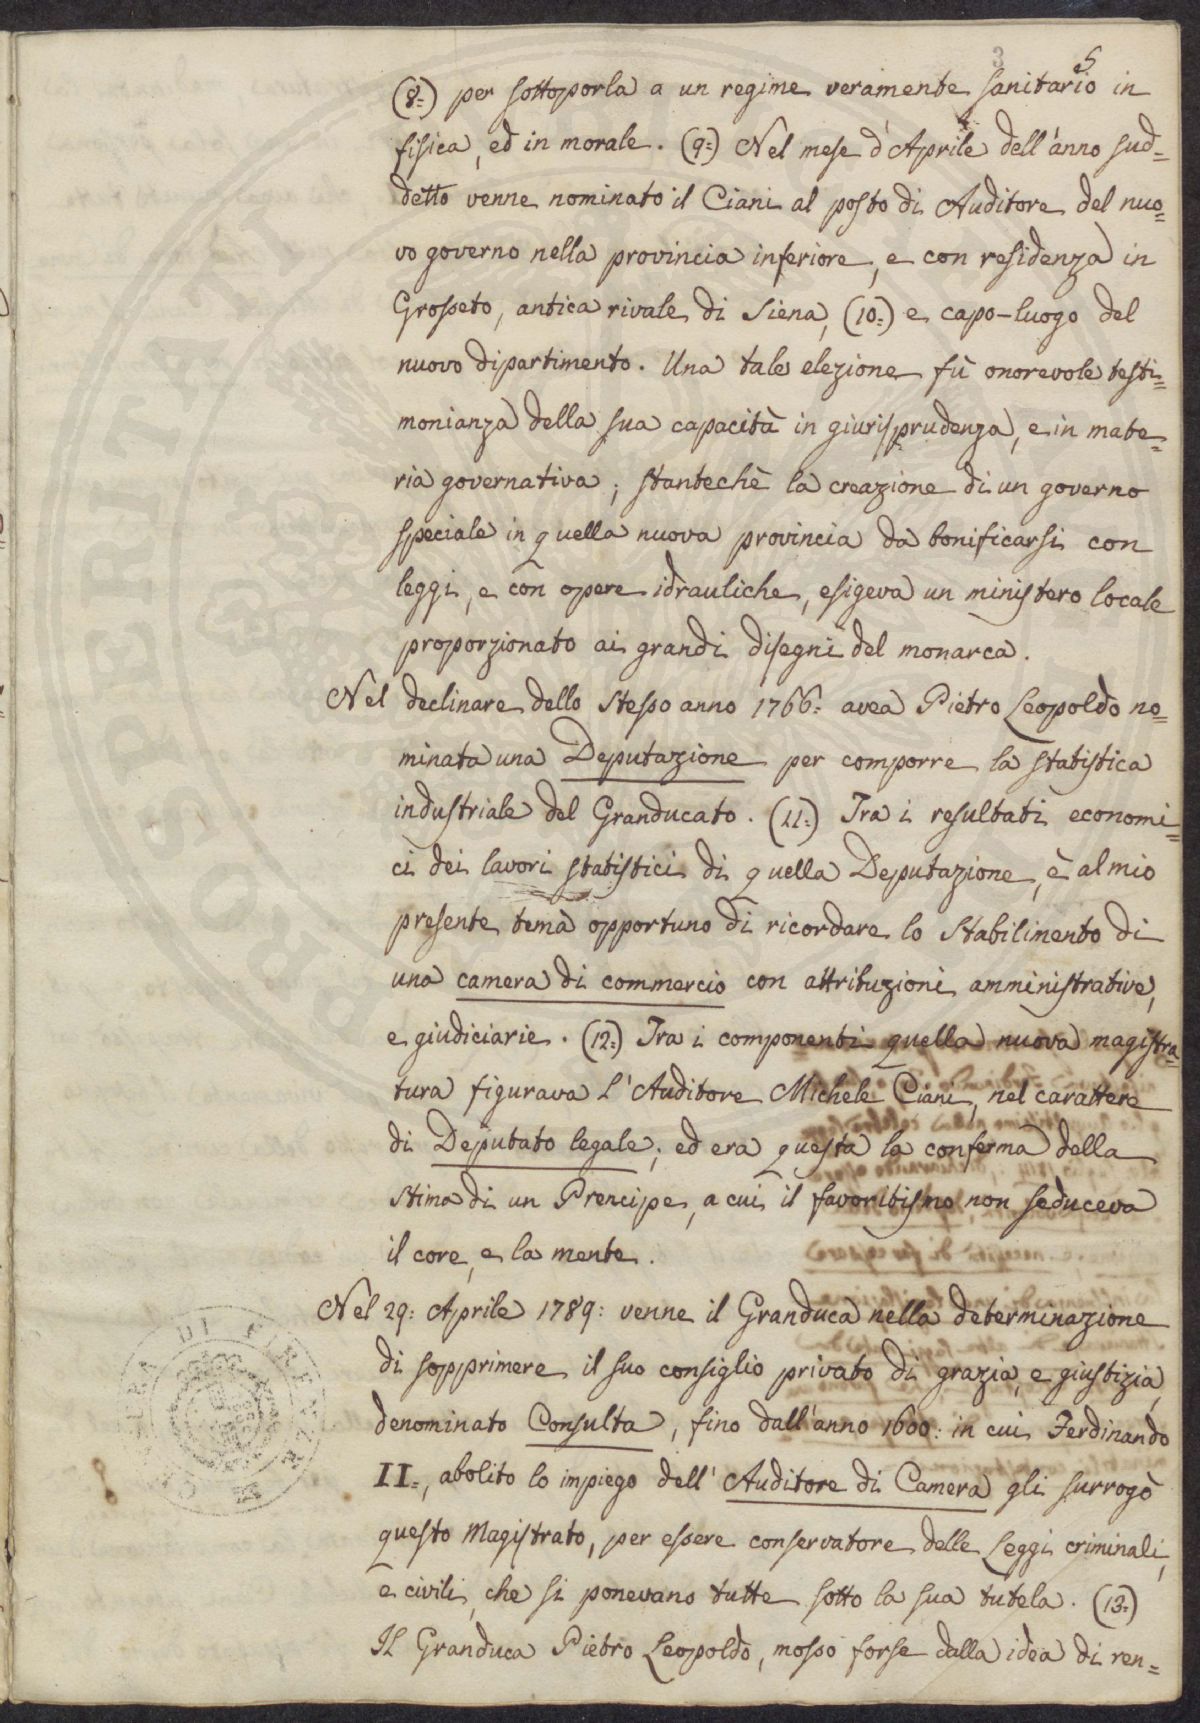 3
5
(8=) per sottoporla a un regime veramente sanitario in
fisica, ed in morale. (9=) Nel mese d'Aprile dell'anno sud=
detto venne nominato il Ciani al posto di Auditore del nuo=
vo governo nella provincia inferiore, e con residenza in
Grosseto, antica rivale di Siena, (10=) e capo-luogo del
nuovo dipartimento. Una tale elezione fù onorevole testi=
monianza della sua capacità in giurisprudenza, e in mate=
ria governativa; stantechè la creazione di un governo
speciale in quella nuova provincia da bonificarsi con
leggi, e con opere idrauliche, esigeva un ministero locale
proporzionato ai grandi disegni del monarca.
Nel declinare dello stesso anno 1766: avea Pietro Leopoldo no=
minata una Deputazione per comporre la statistica
industriale del Granducato. (11=) Tra i resultati economi=
ci dei lavori statistici di quella Deputazione, è al mio
presente tema opportuno di ricordare lo stabilimento di
una camera di commercio con attribuzioni amministrative,
e giudiciarie. (12=) Tra i componenti quella nuova magistra=
tura figurava l'Auditore Michele Ciani, nel carattere
di Deputato legale; ed era questa la conferma della
stima di un Prencipe, a cui il favoritismo non seduceva
il core, e la mente.
Nel 29: Aprile 1789: venne il Granduca nella determinazione
di sopprimere il suo consiglio privato di grazia, e giustizia,
denominato Consulta, fino dall'anno 1600: in cui Ferdinando
II=, abolito lo impiego dell'Auditore di Camera gli surrogò
questo Magistrato, per essere conservatore delle Leggi criminali,
e civili, che si ponevano tutte sotto la sua tutela. (13=)
Il Granduca Pietro Leopoldo, mosso forse dalla idea di ren=